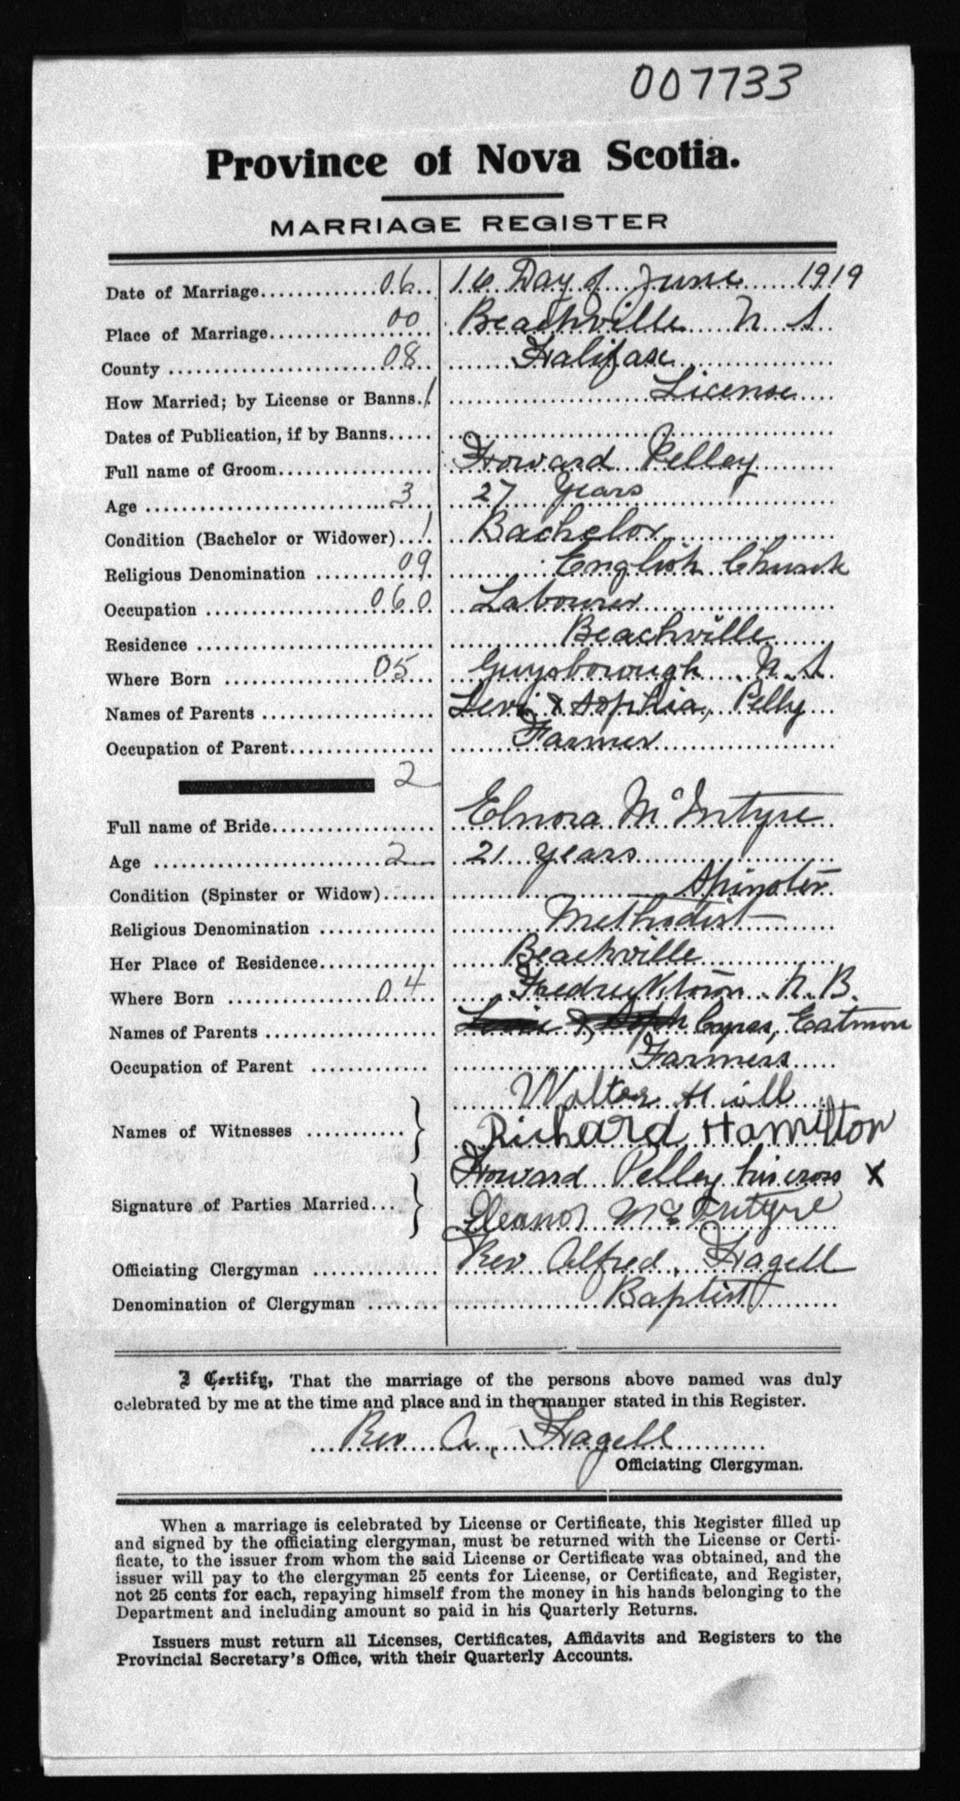 007733
Province of Nova Scotia.
MARRIAGE REGISTER
Date of Marriage 06 16 Day of June 1919
Place of Marriage 00 Beachville N S
County 08 Halifax
How Married; by License or Banns 1 License
Dates of Publication, if by Banns
Full name of Groom Howard Pelley
Age 3 27 Years
Condition (Bachelor or Widower) 1 Bachelor
Religious Denomination 09 English Church
Occupation 060 Labourer
Residence Beachville
Where Born 05 Guysborough N. S
Names of Parents Levi & Sophia, Pelly
Occupation of Parent Farmer
2
Full name of Bride Elnora McIntyre
Age 2 21 years
Condition (Spinster or Widow) Spinster
Religious Denomination Methodist
Her Place of Residence Beachville
Where Born 04 N. B.
Names of Parents Eatmon
Occupation of Parent Farmers
Names of Witnesses Walter Hill
Richard Hamilton
Signature of Parties Married Howard Pelley his cross X
Eleanor McIntyre
Officiating Clergyman Rev Alfred
Denomination of Clergyman Baptist
I Certify, That the marriage of the persons above named was duly
celebrated by me at the time and place and in the manner stated in this Register.
Rev A.
Officiating Clergyman.
When a marriage is celebrated by License or Certificate, this Register filled up
and signed by the officiating clergyman, must be returned with the License or Certi-
ficate, to the issuer from whom the said License or Certificate was obtained, and the
issuer will pay to the clergyman 25 cents for License, or Certificate, and Register,
not 25 cents for each, repaying himself from the money in his hands belonging to the
Department and including amount so paid in his Quarterly Returns.
Issuers must return all Licenses, Certificates, Affidavits and Registers to the
Provincial Secretary's Office, with their Quarterly Accounts.